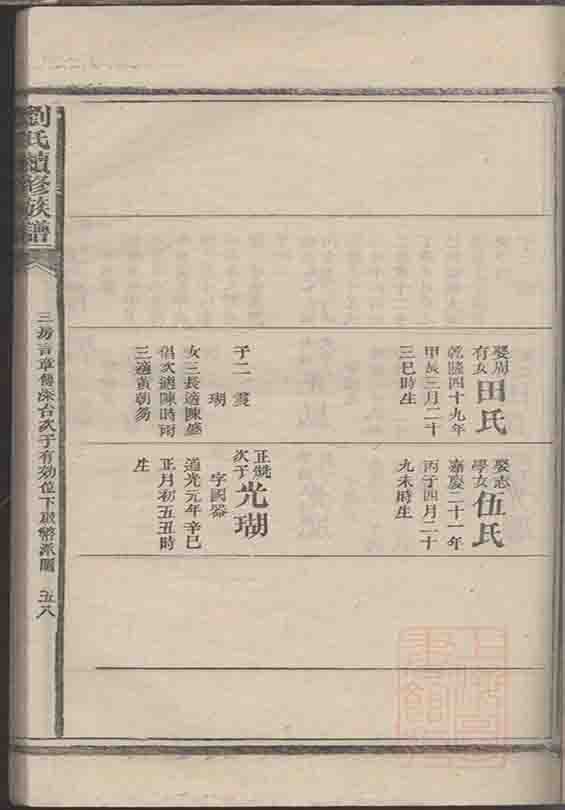 劉氏續修族譜
三房言章魯深台次子有効位下啟 派圖 五八
娶周有女田氏
乾隆四十九年
甲辰三月二十
三巳時生
子二 霞
瑚
女三長適陳盛
倡次適陳時雨
三適黃朝易
娶志學女伍氏
嘉慶二十一年
丙子四月二十
九未時生
正 次子光瑚
字國器
道光元年辛巳
正月初五丑時
生